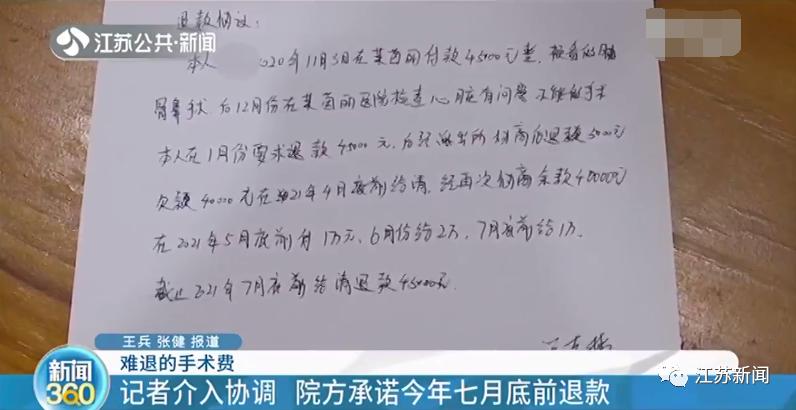 江苏公共·新闻
退款协议:
本人 2020年11月5日在莱茵丽付款45000元整,
骨率手术. 后12月份在莱茵丽医院检查心脏有问题不能做手术
本人在1月份要求退款45000元,后经派出所协商后退款5000元
欠款40000元在2021年4月底前给清,经再次协商余款400000元
在2021年5月底前付1万元,6月份给2万,7月底前给1万.
截止2021年7月底前给清退款45000元.
王兵 张健 报道
新闻
360
难退的手术费
记者介入协调 院方承诺今年七月底前退款
江苏新闻